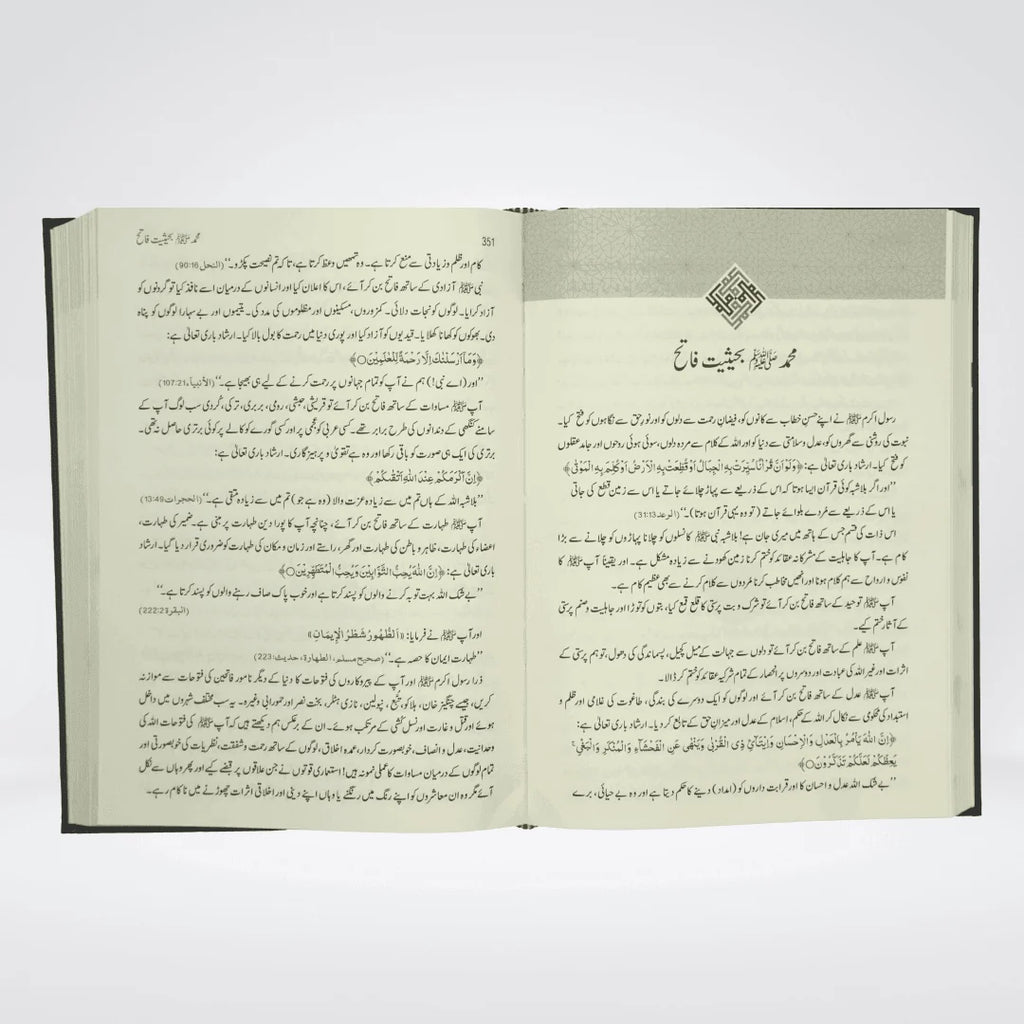 محمد ﷺ بحیثیت فاتح
رسول اکرم ﷺ نے اپنے حسنِ خطاب سے کانوں کو، فیضانِ رحمت سے دلوں کو اور نورِ حق سے نگاہوں کو فتح کیا۔
نبوت کی روشنی سے گھروں کو، عدل و سلامتی سے دنیا کو اور اللہ کے کلام سے مردہ دلوں، سوئی ہوئی روحوں اور جامد عقلوں
کو فتح کیا۔ ارشاد باری تعالیٰ ہے: ﴿وَلَوْ اَنَّ قُرْاٰنًا سُيِّرَتْ بِهِ الْجِبَالُ اَوْ قُطِّعَتْ بِهِ الْاَرْضُ اَوْ كُلِّمَ بِهِ الْمَوْتٰى﴾
’’اور اگر بلاشبہ کوئی قرآن ایسا ہوتا کہ اس کے ذریعے سے پہاڑ چلائے جاتے یا اس سے زمین قطع کی جاتی
یا اس کے ذریعے سے مُردے بلوائے جاتے (تو وہ یہی قرآن ہوتا)۔‘‘ (الرعد 31:13)
اس ذات کی قسم جس کے ہاتھ میں میری جان ہے! بلاشبہ نبی ﷺ کا نسلوں کو چلانا پہاڑوں کو چلانے سے بڑا
کام ہے۔ آپ کا جاہلیت کے مشرکانہ عقائد کو ختم کرنا زمین کھودنے سے زیادہ مشکل ہے۔ اور یقیناً آپ ﷺ کا
نفوس و ارواح سے ہم کلام ہونا اور انھیں مخاطب کرنا مُردوں سے کلام کرنے سے بھی عظیم کام ہے۔
آپ ﷺ توحید کے ساتھ فاتح بن کر آئے تو شرک و بت پرستی کا قلع قمع کیا، بتوں کو توڑا اور جاہلیت و صنم پرستی
کے آثار ختم کیے۔
آپ ﷺ علم کے ساتھ فاتح بن کر آئے تو دلوں سے جہالت کے میل کچیل، پسماندگی کی دھول، توہم پرستی کے
اثرات اور غیر اللہ کی عبادت اور دوسروں پر انحصار کے تمام شرکیہ عقائد کو ختم کر ڈالا۔
آپ ﷺ عدل کے ساتھ فاتح بن کر آئے اور لوگوں کو ایک دوسرے کی بندگی، طاغوت کی غلامی اور ظلم و
استبداد کی محکومی سے نکال کر اللہ کے حکم، اسلام کے عدل اور میزانِ حق کے تابع کر دیا۔ ارشاد باری تعالیٰ ہے:
﴿اِنَّ اللّٰهَ يَاْمُرُ بِالْعَدْلِ وَالْاِحْسَانِ وَاِيْتَآئِ ذِى الْقُرْبٰى وَيَنْهٰى عَنِ الْفَحْشَآءِ وَالْمُنْكَرِ وَالْبَغْيِ ۚ
يَعِظُكُمْ لَعَلَّكُمْ تَذَكَّرُوْنَ﴾
’’بے شک اللہ عدل و احسان کا اور قرابت داروں کو (امداد) دینے کا حکم دیتا ہے اور وہ بے حیائی، برے
351
محمد ﷺ بحیثیت فاتح
کام اور ظلم و زیادتی سے منع کرتا ہے۔ وہ تمھیں وعظ کرتا ہے، تاکہ تم نصیحت پکڑو۔‘‘ (النحل 90:16)
نبی ﷺ آزادی کے ساتھ فاتح بن کر آئے، اس کا اعلان کیا اور انسانوں کے درمیان اسے نافذ کیا تو گردنوں کو
آزاد کرایا۔ لوگوں کو نجات دلائی۔ کمزوروں، مسکینوں اور مظلوموں کی مدد کی۔ یتیموں اور بے سہارا لوگوں کو پناہ
دی۔ بھوکوں کو کھانا کھلایا۔ قیدیوں کو آزاد کیا اور پوری دنیا میں رحمت کا بول بالا کیا۔ ارشاد باری تعالیٰ ہے:
﴿وَمَآ اَرْسَلْنٰكَ اِلَّا رَحْمَةً لِّلْعٰلَمِيْنَ﴾
’’اور (اے نبی!) ہم نے آپ کو تمام جہانوں پر رحمت کرنے کے لیے ہی بھیجا ہے۔‘‘ (الأنبیآء 107:21)
آپ ﷺ مساوات کے ساتھ فاتح بن کر آئے تو قریشی، حبشی، رومی، بربری، ترکی، کُردی سب لوگ آپ کے
سامنے کنگھی کے دندانوں کی طرح برابر تھے۔ کسی عربی کو عجمی پر اور کسی گورے کو کالے پر کوئی برتری حاصل نہ تھی۔
برتری کی ایک ہی صورت کو باقی رکھا اور وہ ہے تقویٰ و پرہیزگاری۔ ارشاد باری تعالیٰ ہے:
﴿اِنَّ اَكْرَمَكُمْ عِنْدَ اللّٰهِ اَتْقٰىكُمْ﴾
’’بلاشبہ اللہ کے ہاں تم میں سے زیادہ عزت والا (وہ ہے جو) تم میں سے زیادہ متقی ہے۔‘‘ (الحجرات 13:49)
آپ ﷺ طہارت کے ساتھ فاتح بن کر آئے، چنانچہ آپ کا پورا دین طہارت پر مبنی ہے۔ ضمیر کی طہارت،
اعضاء کی طہارت، ظاہر و باطن کی طہارت اور گھر، راستے اور زمان و مکان کی طہارت کو ضروری قرار دیا گیا۔ ارشاد
باری تعالیٰ ہے: ﴿اِنَّ اللّٰهَ يُحِبُّ التَّوَّابِيْنَ وَيُحِبُّ الْمُتَطَهِّرِيْنَ﴾
’’بے شک اللہ بہت توبہ کرنے والوں کو پسند کرتا ہے اور خوب پاک صاف رہنے والوں کو پسند کرتا ہے۔‘‘
(البقرۃ 222:2)
اور آپ ﷺ نے فرمایا: «اَلطُّهُورُ شَطْرُ الْإِيمَانِ»
’’طہارت ایمان کا حصہ ہے۔‘‘ (صحیح مسلم، الطهارة، حدیث: 223)
ذرا رسول اکرم ﷺ اور آپ کے پیروکاروں کی فتوحات کا دنیا کے دیگر نامور فاتحین کی فتوحات سے موازنہ
کریں، جیسے چنگیز خان، ہلاکو، تبع، نپولین، نازی ہٹلر، بخت نصر اور حمورابی وغیرہ۔ یہ سب مختلف شہروں میں داخل
ہوئے اور قتل و غارت اور نسل کشی کے مرتکب ہوئے۔ ان کے برعکس ہم دیکھتے ہیں کہ آپ ﷺ کی فتوحات اللہ کی
وحدانیت، عدل و انصاف، خوبصورت کردار، عمدہ اخلاق، لوگوں کے ساتھ رحمت و شفقت، نظریات کی خوبصورتی اور
تمام لوگوں کے درمیان مساوات کا عملی نمونہ ہیں! استعماری قوتوں نے جن علاقوں پر قبضے کیے اور پھر وہاں سے نکل
آئے مگر وہ ان معاشروں کو اپنے رنگ میں رنگنے یا وہاں اپنے دینی اور اخلاقی اثرات چھوڑنے میں ناکام رہے۔